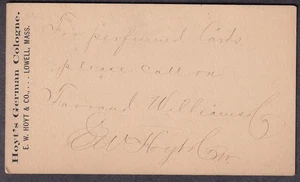 Hoyt's German Cologne.
E. W. HOYT & CO., ... LOWELL, MASS.
For perfumed Cards
please call on
Farrand Williams & Co
E W Hoyt & Co